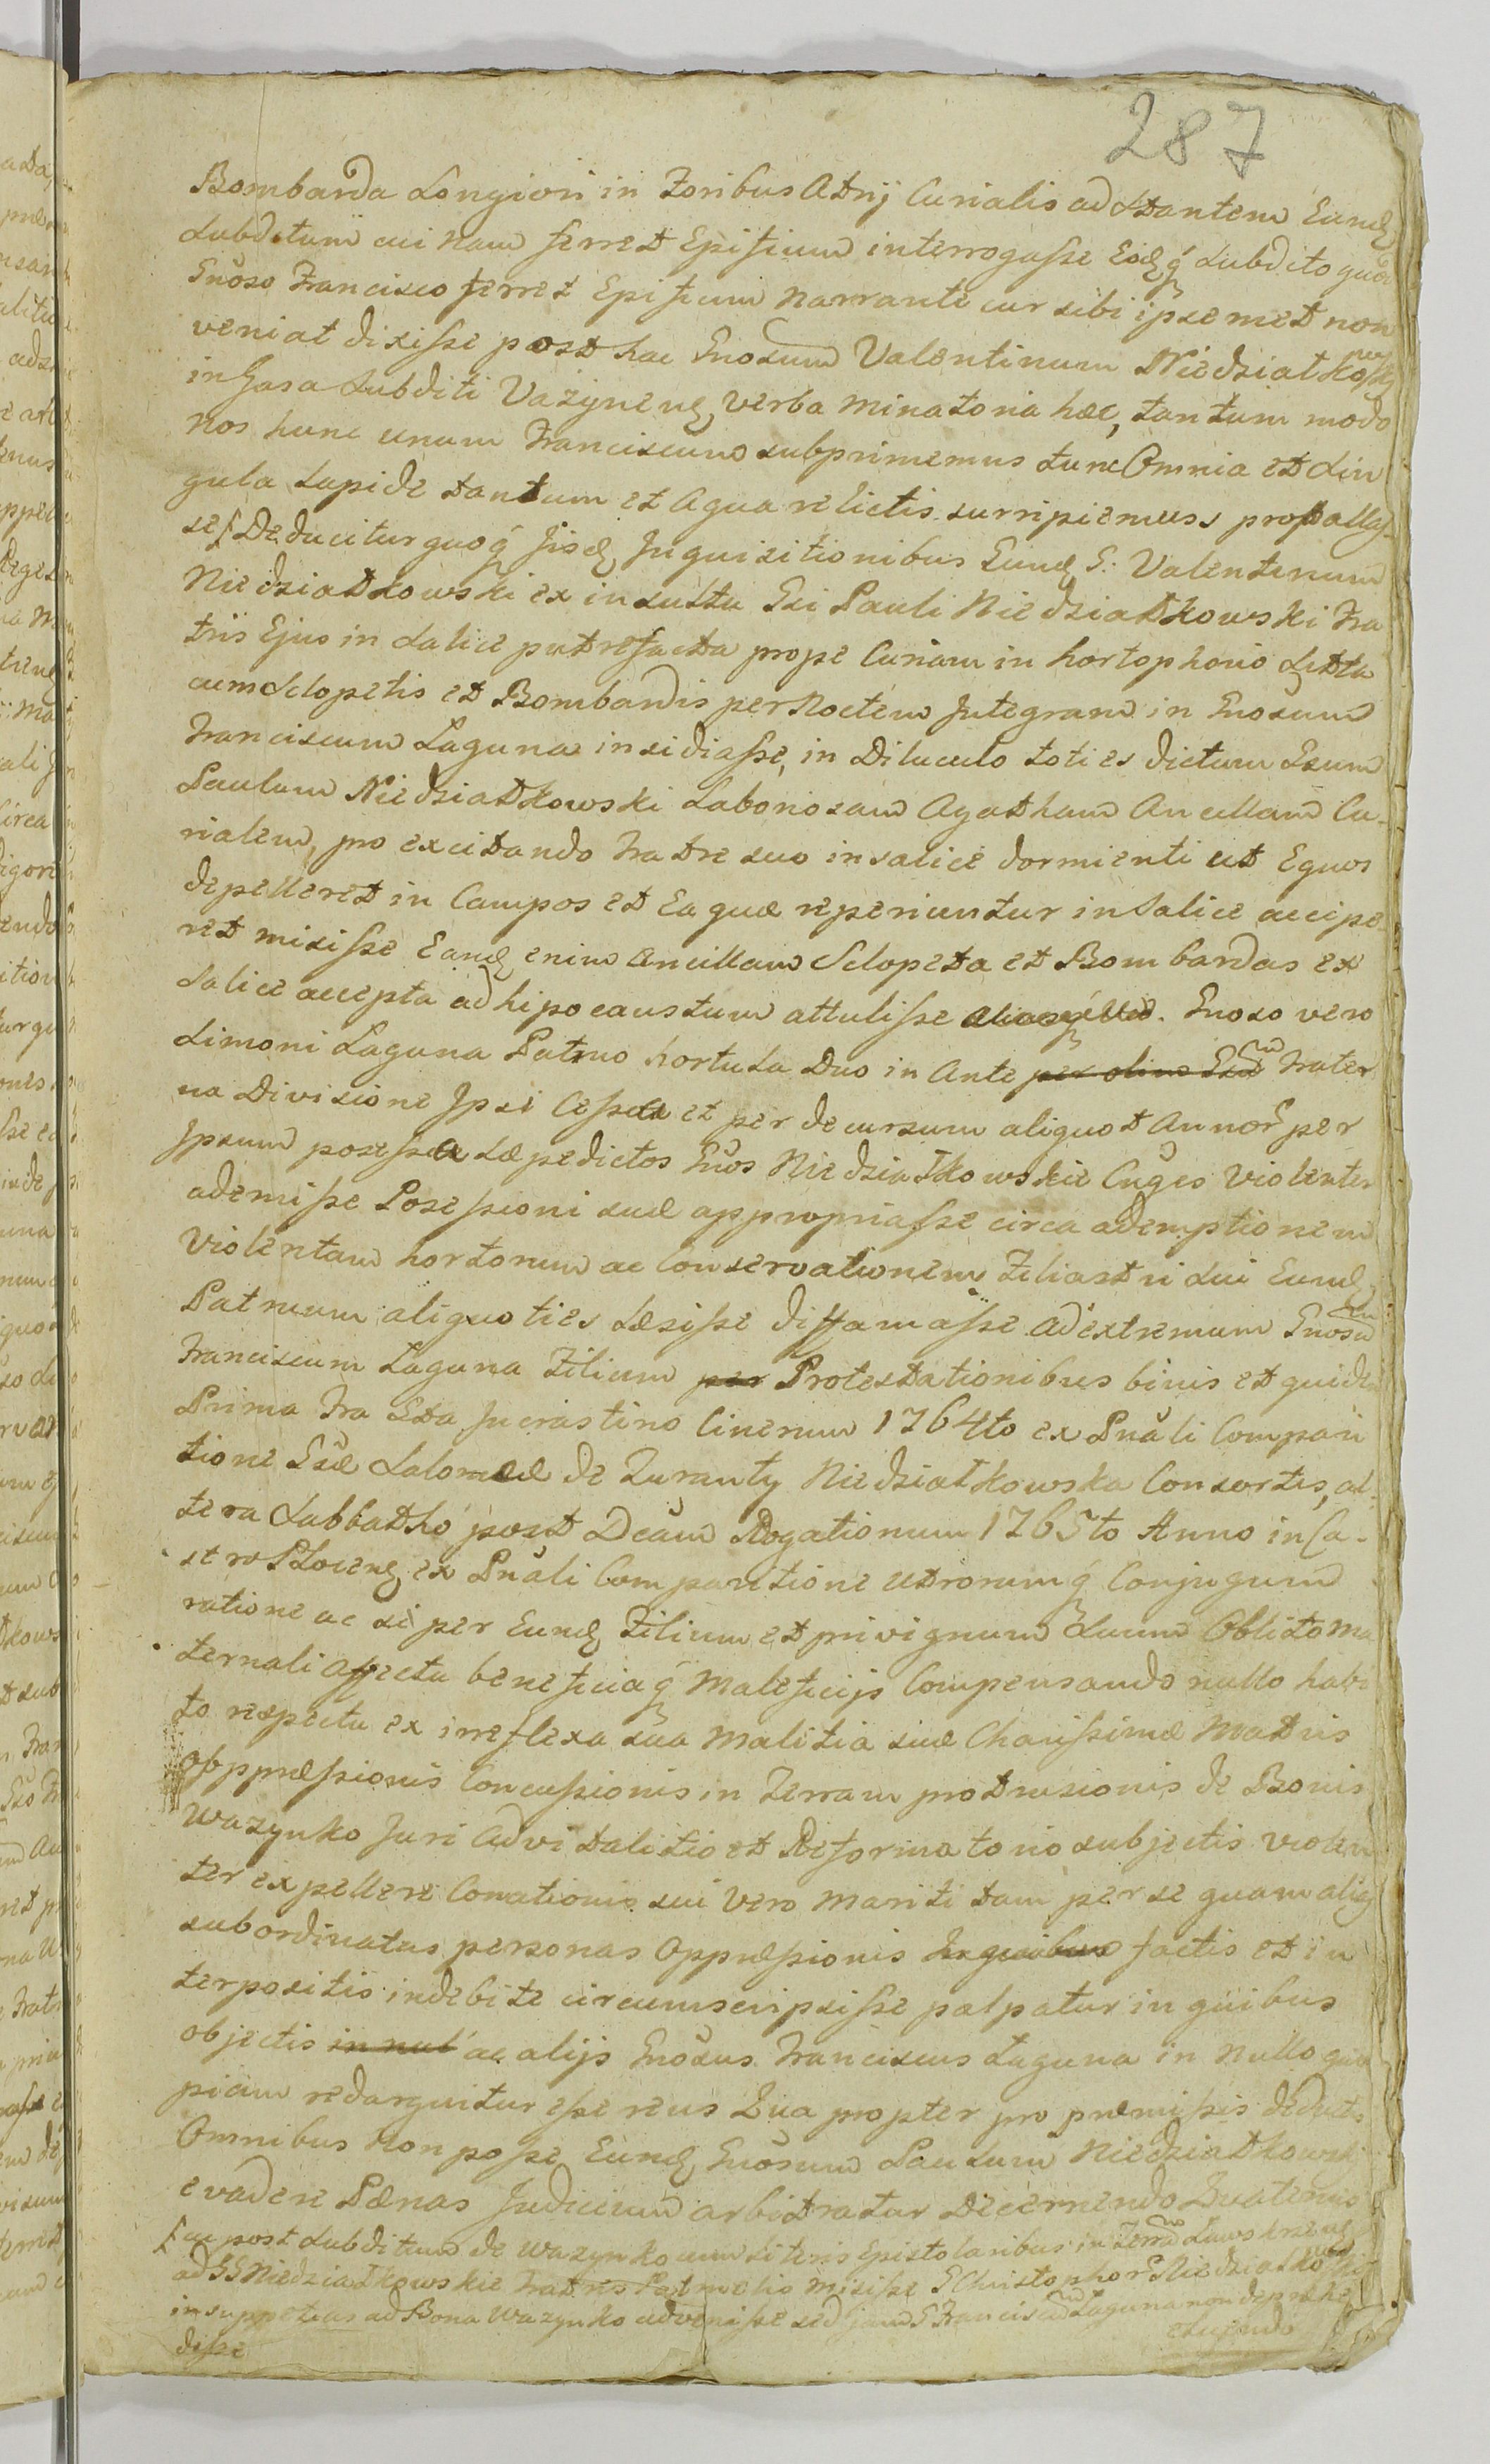 287
Bombarda Longiori in Foribus Atrij Curialis adstantem Eundę
Subditum cui nam ferret Epistium interrogasse Eodę q́ Subdito quod
Gnoso Francisco ferret Epistium narrante cur sibi ipsemet non
veniat dixisse post hac Gnosum Valentinum Niedziatkowsk
in Casa Subditi Vazynenę verba minatoria hæc, tantum modo
Nos hunc unum Franciscum subprimemus tunc Omnia et Sin
gula Lapide tantum et Aqua relictis surripiemus,
se Deducitur quoq́ Jisdę Inquisitionibus Eundę G: Valentinum
Niedziatkowski ex insultu Gsi Pauli Niedziatkowski Fra
tris Ejus in Salice putrefacta prope Curiam in hortophorio
cum Sclopetis et Bombardis per Noctem Integram in Gnosum
Franciscum Laguna insidiasse, in Diluculo toties dictum Gsum
Paulum Niedziatkowski Laboriosam Agatham Ancillam Cu-
rialem, pro excitando Fratre suo in salice dormienti ut Equos
depelleret in Campos et Ea quæ reperiuntur in Salice accipe-
ret misisse Eandę enim Ancillam Sclopeta et Bombardas ex
Salice accepta ad hipocaustum attulisse. Gnoso vero
Simoni Laguna Patruo hortula Duo in Ante per olim Frater
na Divisione Ipsi Cessa et per decursum aliquot Annor per
Ipsum posessa Sæpedictos Gnos Niedziatkowskie Cnges Violenter
ademisse Posessioni suæ appropriasse circa ademptionem
Violentam hortorum ac Conservationem Filiastri sui Eundę
Patruum aliquoties Læsisse diffamasse ad extremum Gnosum
Franciscum Laguna Filium per Protestationibus binis et quidem
Prima Fra Sta Jncrastino Cinerum 1764to ex Pnali Compari
tione Gsæ Salomeæ de Zuranty Niedziatkowska Consortis, al-
tera Sabbatho post Dcam Rogationum 1765to Anno in Ca-
stro Plocenę ex Pnali Comparitione utrorumq́ Conjugum
ratione ac si per Eundę Filium et privignum Suum Oblito ma
ternali affectu beneficiaq́ Maleficijs Compensando nullo habi
to respectu ex irreflexa sua Malitia suæ Charissimæ Matris
Oppræssionis Concussionis in Terram protrusionis de Bonis
Wazynko Juri Advitalitio et Reformatorio subjectis violen
ter expellere Conationis sui Vero Mariti tam per se quam alias
subordinatas personas Oppræssionis In quibus factis et in
terpositis indebite circumscripsisse palpatur in quibus
objectis in nul ac alijs Gnosus Franciscus Laguna in Nullo quo
piam redarguitur esse reus Qua propter pro præmissis deductis
Omnibus Non posse Eundę Gnosum Paulum Niedziatkowski
evadere Pænas Judicium arbitratur Decernendo Quatenus
ac post Subditum de Wazynko cum Literis Epistolaribus in Terram
ad GG Niedziatkowskie Fatris Patruelis misisse G Christophor Niedziatkowski
in suppetias ad Bona Wazynko advenisse sed jam G Franciscum Laguna non deprehe
disse